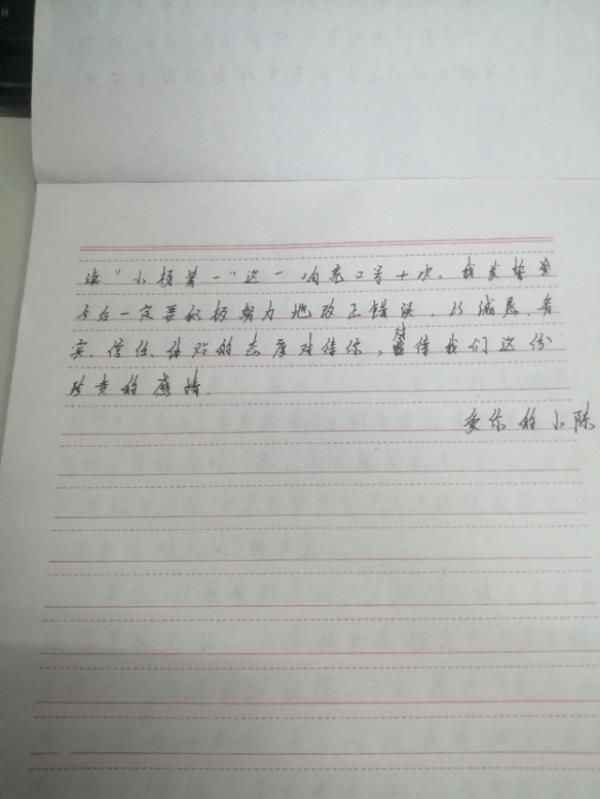 读"小杨第一"这一内容二万十次。我发誓我
今后一定要积极努力地改正错误，以诚恳、老
实、信任、体贴的态度对待你，对待我们这份
珍贵的感情。
爱你的小陈